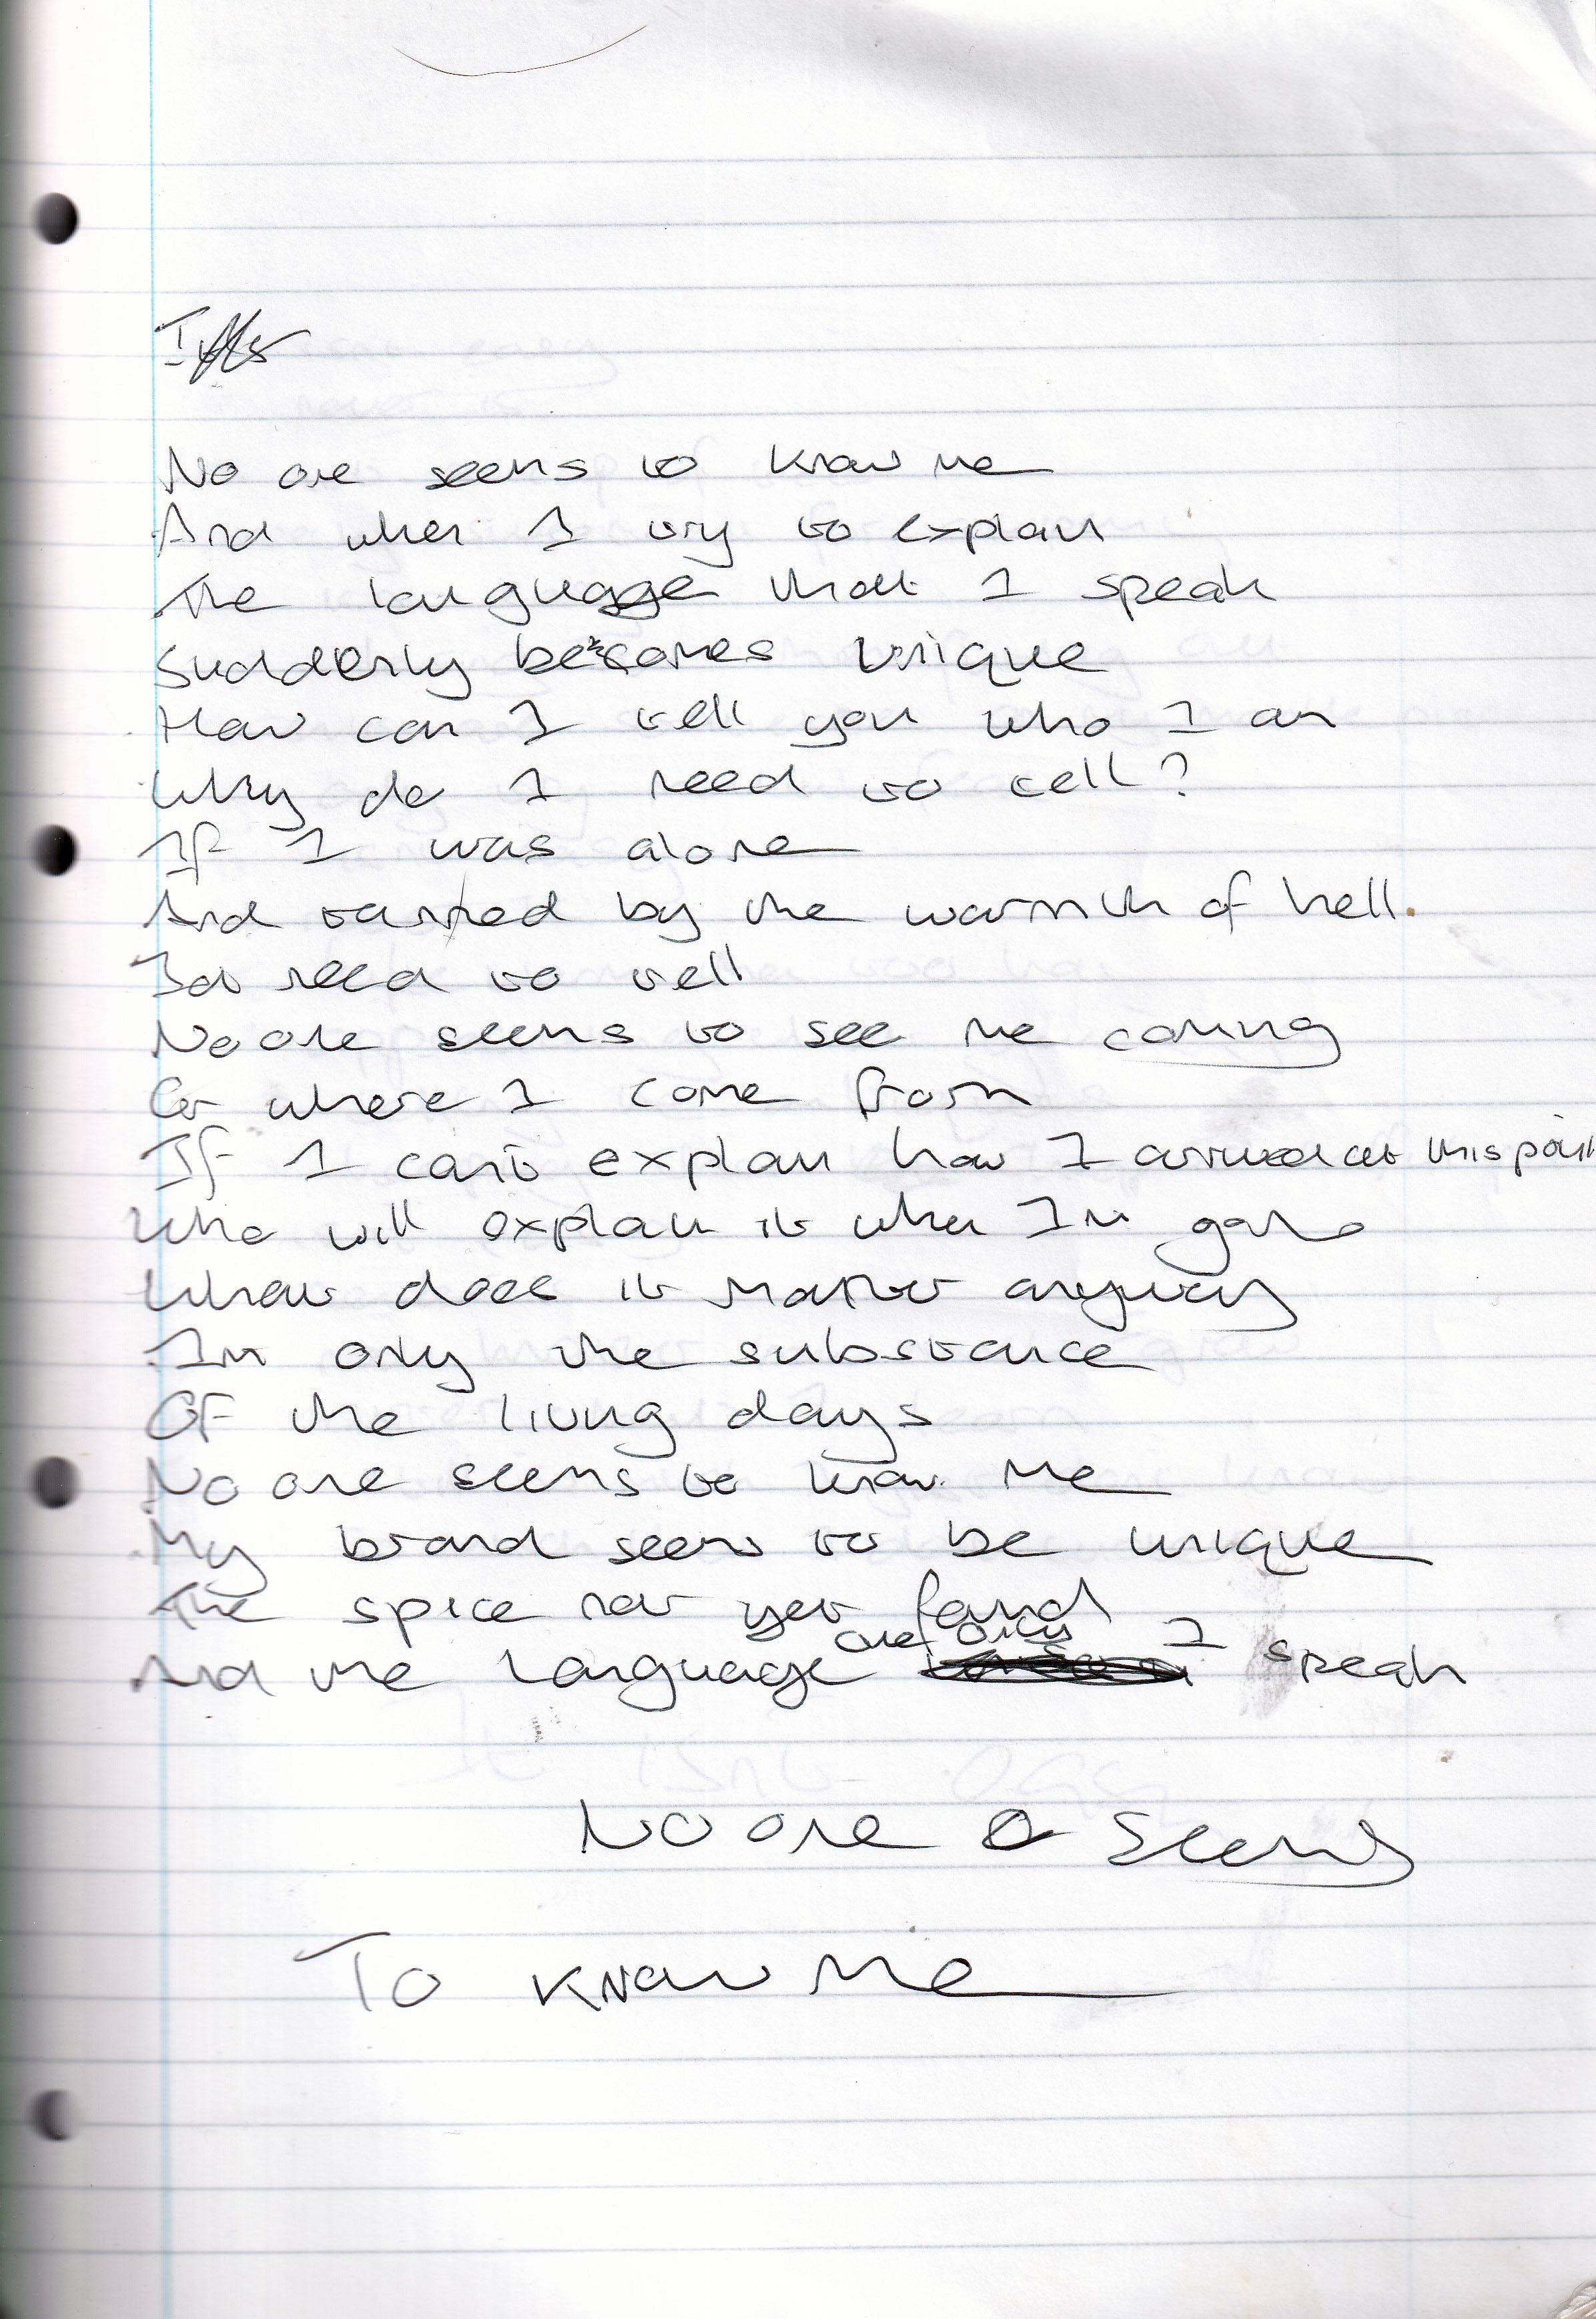 No one seems to know me
And when I try to explain
The language that I speak
Suddenly becomes unique
How can I tell you who I am
Why do I need to tell?
If I was alone
And by the warmth of hell.
need to tell
No one seems to see me coming
Or where I come from
If I can't explain how I arrived at this point
Who will explain it when Im gone
What does it matter anyway
Im only the substance
Of the living days
No one seems to know me
My brand seems to be unique
The spice not yet found
And the language one only I speak
No one seems
To know me